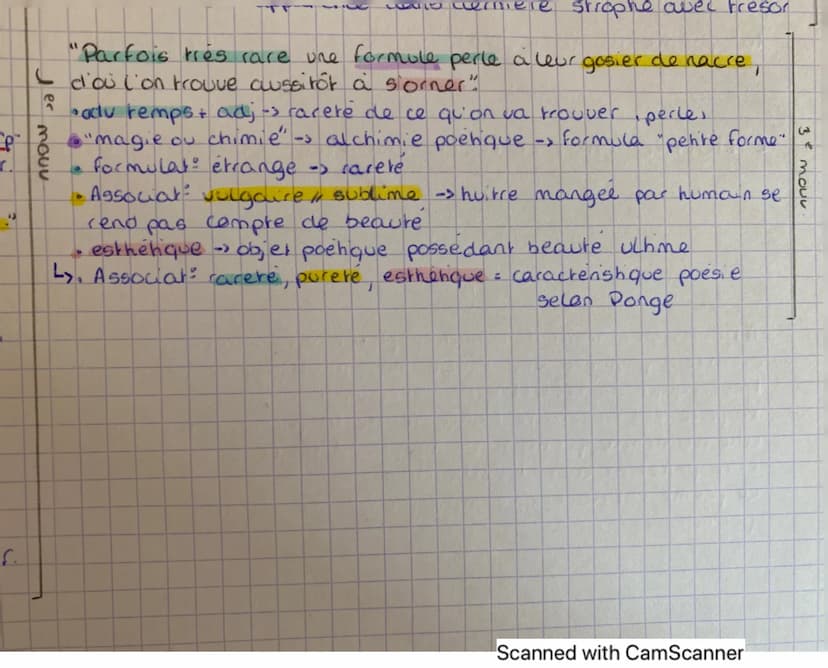 dernière strophe avec trésor
"Parfois très rare une formule perle à leur gosier de nacre,
d'où l'on trouve aussitôt à s'orner".
• adv temps + adj -> rareté de ce qu'on va trouver, perles
• "magie ou chimie" -> alchimie poétique -> formula "petite forme"
• formulat° étrange -> rareté
• Associat° vulgaire // sublime -> huître mangée par humain se
rend pas compte de beauté
• esthétique -> objet poétique possédant beauté ultime
↳. Associat° rareté, pureté, esthétique = caractéristique poésie
selon Ponge
1er mouv
3e mouv.
Scanned with CamScanner